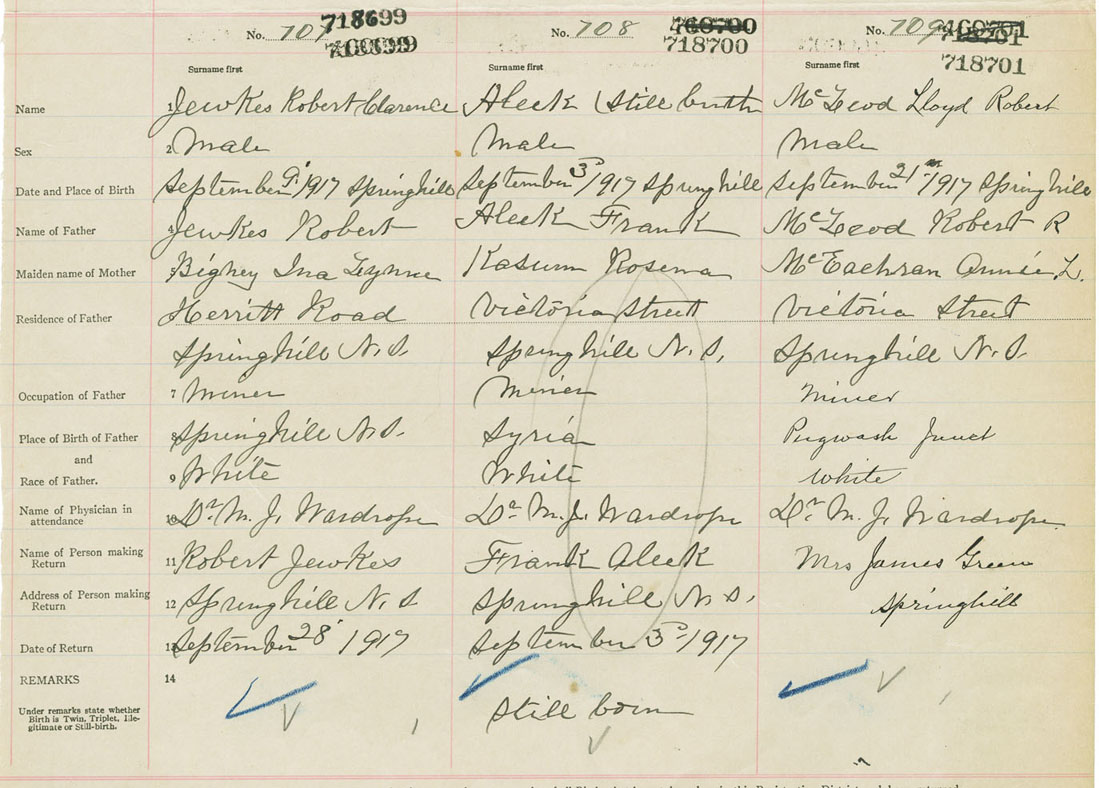 No. 707 718699
No. 708 760700
718700
No. 709
718701
Surname first Surname first Surname first
Name 1 Jewkes Robert Clarence Aleek (Still birth Mc Leod Lloyd Robert
Sex 2 Male Male Male
Date and Place of Birth September 9th 1917 Springhill September 3d/1917 Springhill September 21st/1917 Springhill
Name of Father 4 Jewkes Robert Aleek Frank Mc Leod Robert R
Maiden name of Mother 5 Bigney Ina Lynne Kasum Rosema Mc Eachran Annie L.
Residence of Father Herritt Road Victoria Street Victoria Street
Springhill N.S. Springhill N.S. Springhill N.S.
Occupation of Father 7 Miner Miner Miner
Place of Birth of Father 8 Springhill N.S. Syria Pugwash Junct
and
Race of Father. 9 White White White
Name of Physician in
attendance 10 Dr. M. J. Wardrope Dr. M. J. Wardrope Dr. M. J. Wardrope
Name of Person making
Return 11 Robert Jewkes Frank Aleek Mrs James Green
Address of Person making
Return 12 Springhill N.S Springhill N.S. Springhill
Date of Return 13 September 28/1917 September 3d/1917
REMARKS 14
Under remarks state whether
Birth is Twin, Triplet, Ille-
gitimate or Still-birth.
Still born